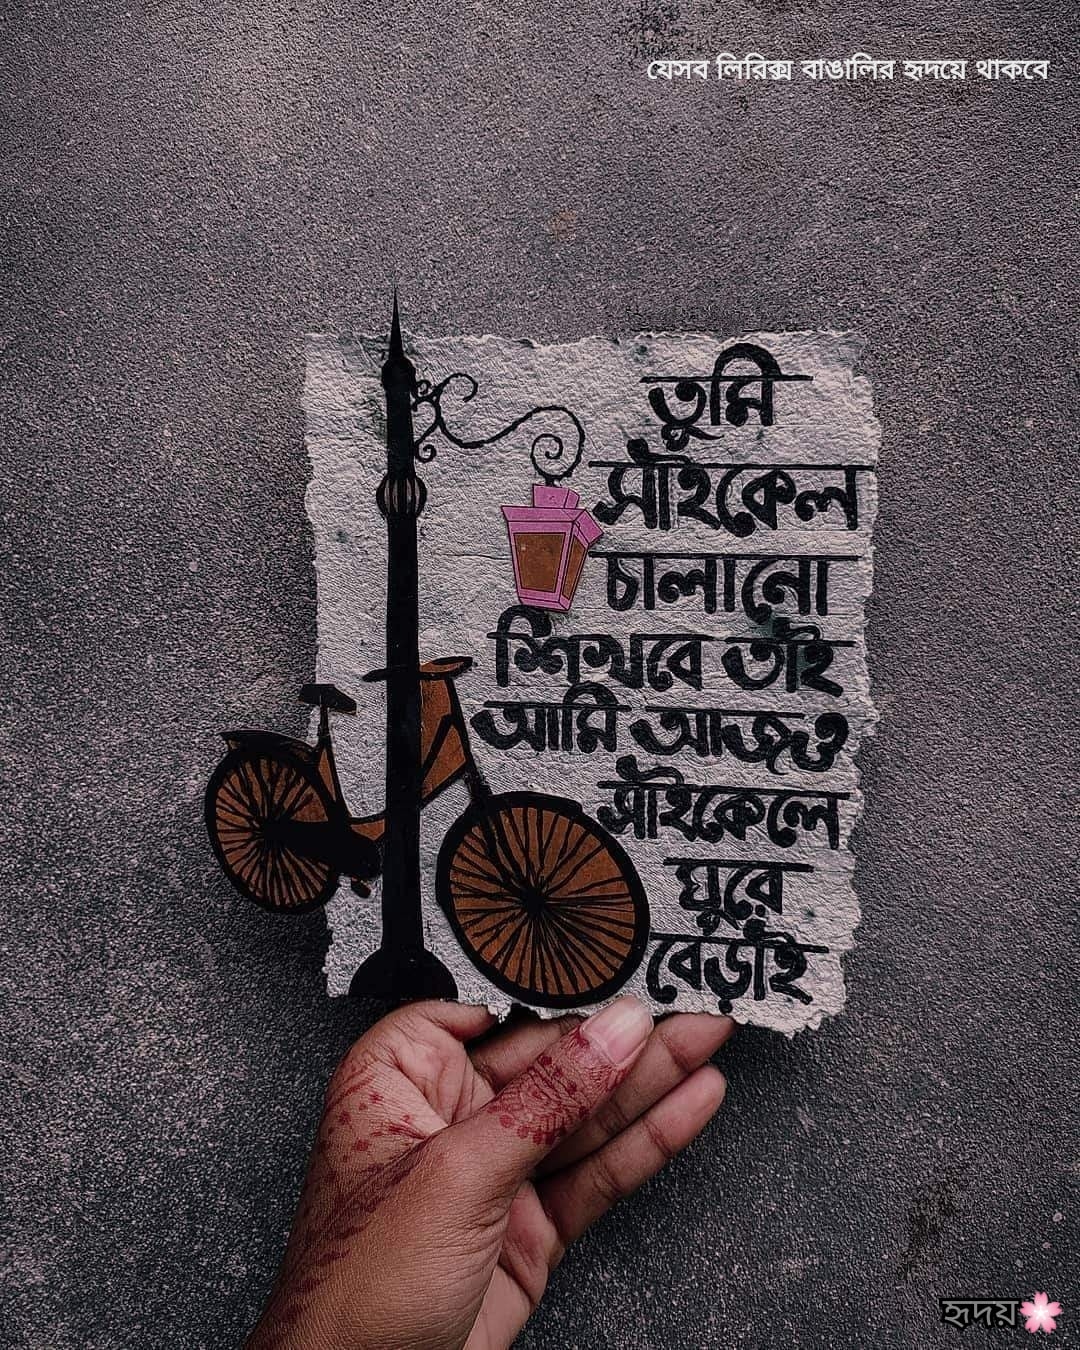 যেসব লিরিক্স বাঙালির হৃদয়ে থাকবে
তুমি
সাইকেল
চালানো
শিখবে তাই
আমি আজও
সাইকেলে
ঘুরে
বেড়াই
হৃদয়🌸